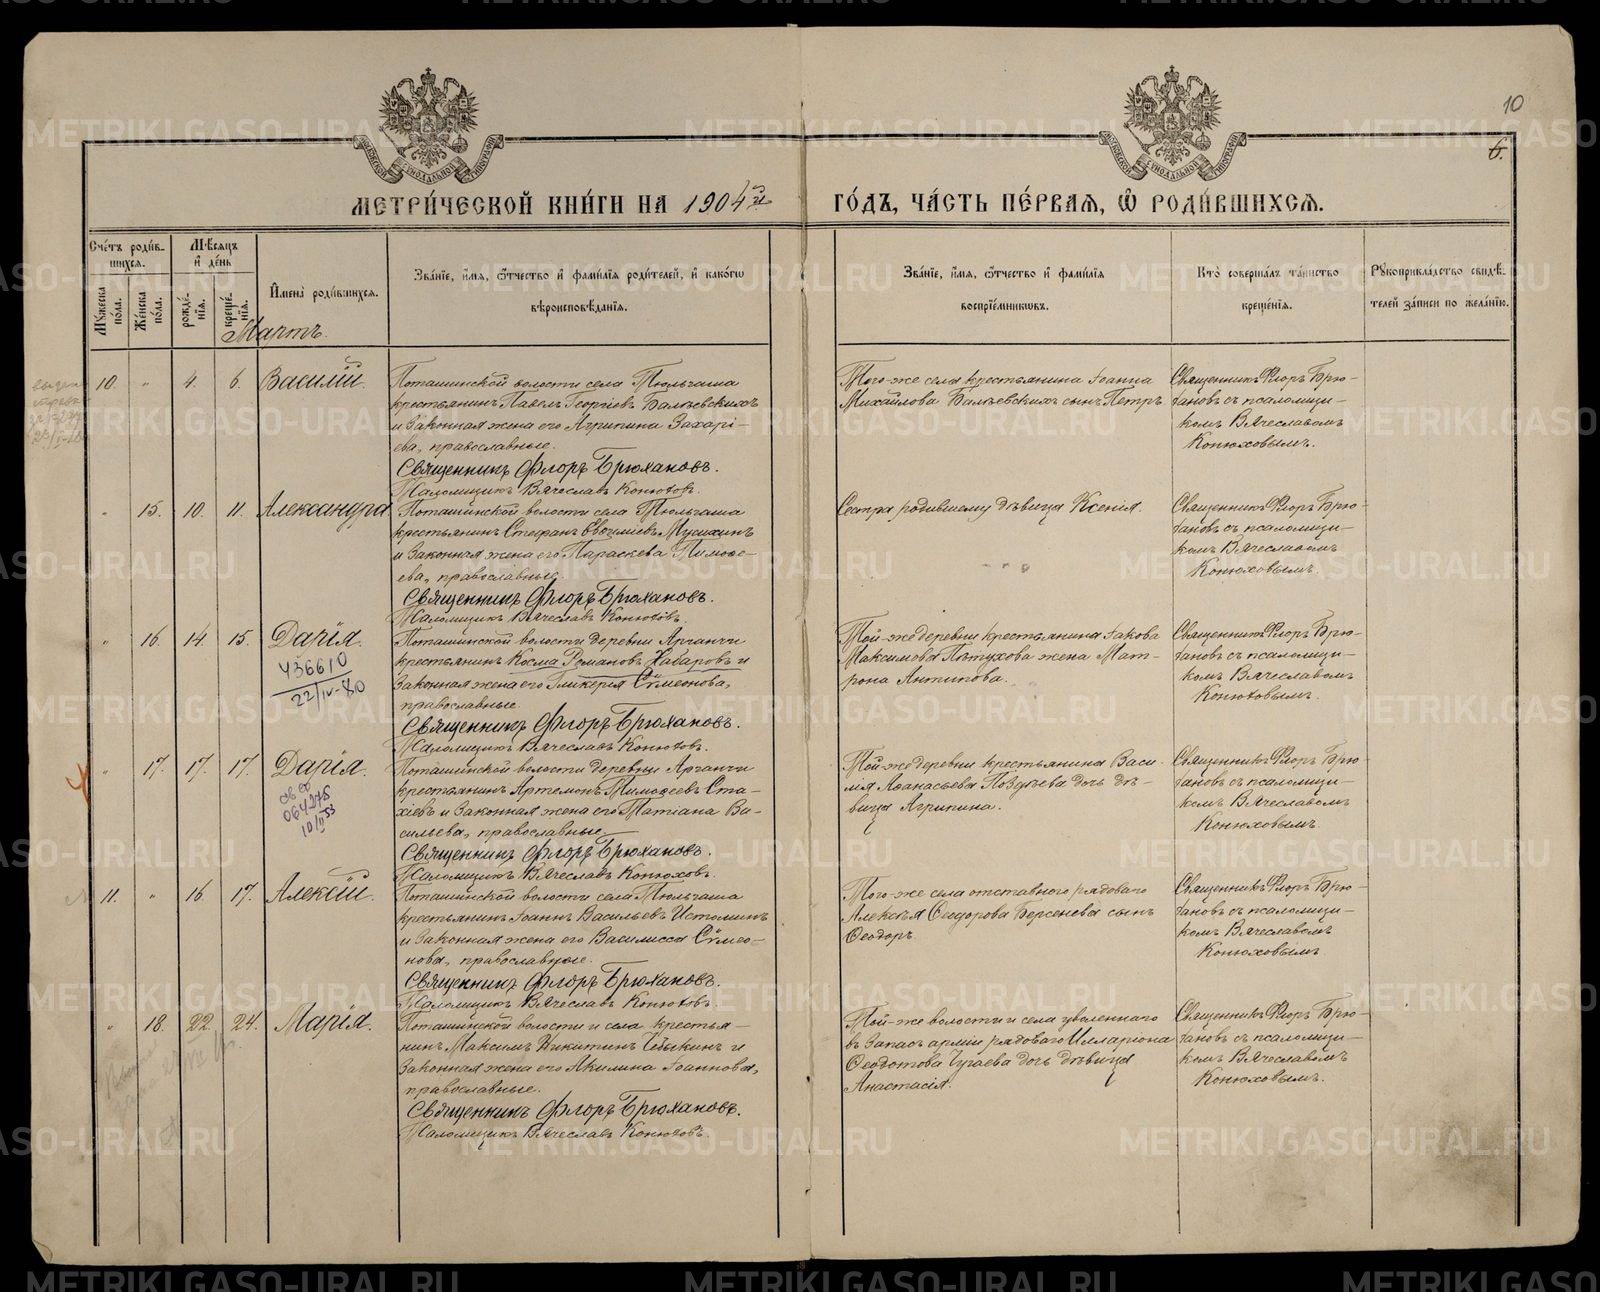 10
6.
МЕТРИ́ЧЕСКОЙ КНИ́ГИ НА 1904й ГО́ДЪ, ЧА́СТЬ ПЕ́РВАЯ, Ѡ҆ РОДИ́ВШИХСЯ.
Сче́тъ роди́в-
шихся.
Му́жеска по́ла.
Же́нска по́ла.
Мѣ́сяцъ
и҆ де́нь
рожде́-
нїя.
креще́-
нїя.
И҆мена̀ роди́вшихся.
Зва́нїе, и҆́мя, ѻ҆́тчество и҆ фами́лїя роди́телей, и҆ како́гѡ
вѣроисповѣ́данїя.
Зва́нїе, и҆́мя, ѻ҆́тчество и҆ фами́лїя
воспрїе́мникѡвъ.
Кто̀ соверша́лъ та́инство
креще́нїя.
Рꙋкоприкла́дство свидѣ́-
телей за́писи по жела́нїю.
Мартъ.
10. " 4. 6. Василій.
Поташинской волости села Тюльгаша
крестьянинъ Павелъ Георгіевъ Балѣевскихъ
и законная жена его Агрипина Захарі-
ева, православные.
Священникъ Флоръ Брюхановъ.
Псаломщикъ Вячеславъ Конюховъ.
Того-же села крестьянина Іоанна
Михайлова Балѣевскихъ сынъ Петръ
Священникъ Флоръ Брю-
хановъ съ псаломщи-
комъ Вячеславомъ
Конюховымъ.
" 15. 10. 11. Александра
Поташинской волости села Тюльгаша
крестьянинъ Стефанъ Мусихинъ
и законная жена его Параскева Тимоѳе-
ева, православные.
Священникъ Флоръ Брюхановъ.
Псаломщикъ Вячеславъ Конюховъ.
Сестра родившему дѣвица Ксенія.
Священникъ Флоръ Брю-
хановъ съ псаломщи-
комъ Вячеславомъ
Конюховымъ.
" 16. 14. 15. Дарія.
436610
22/IV-80
Поташинской волости деревни Арганчи
крестьянинъ Косма Романовъ Хабаровъ и
законная жена его Гликерія Сѵмеонова,
православные.
Священникъ Флоръ Брюхановъ.
Псаломщикъ Вячеславъ Конюховъ.
Той-же деревни крестьянина Іакова
Максимова Пѣтухова жена Мат-
рона Антипова.
Священникъ Флоръ Брю-
хановъ съ псаломщи-
комъ Вячеславомъ
Конюховымъ.
" 17. 17. 17. Дарія.
св во
064275
10/II 53
Поташинской волости деревни Арганчи
крестьянинъ Артемонъ Тимоѳеевъ Ста-
хіевъ и законная жена его Татіана Ва-
сильева, православные.
Священникъ Флоръ Брюхановъ.
Псаломщикъ Вячеславъ Конюховъ.
Той-же деревни крестьянина Васи-
лія Аѳанасьева Поздѣева дочь дѣ-
вица Агрипина.
Священникъ Флоръ Брю-
хановъ съ псаломщи-
комъ Вячеславомъ
Конюховымъ.
11. " 16. 17. Алексій.
Поташинской волости села Тюльгаша
крестьянинъ Іоаннъ Васильевъ Истоминъ
и законная жена его Василисса Сѵмео-
нова, православные.
Священникъ Флоръ Брюхановъ.
Псаломщикъ Вячеславъ Конюховъ.
Того-же села отставного рядового
Алексѣя Ѳеодорова Берсенева сынъ
Ѳеодоръ.
Священникъ Флоръ Брю-
хановъ съ псаломщи-
комъ Вячеславомъ
Конюховымъ
" 18. 22. 24. Марія.
Поташинской волости и села крестья-
нинъ Максимъ Никитинъ и
законная жена его Акилина Іоаннова,
православные.
Священникъ Флоръ Брюхановъ.
Псаломщикъ Вячеславъ Конюховъ.
Той-же волости и села уволеннаго
въ запасъ арміи рядового Илларіона
Ѳеодотова Чугаева дочь дѣвица
Анастасія.
Священникъ Флоръ Брю-
хановъ съ псаломщи-
комъ Вячеславомъ
Конюховымъ.
METRIKI.GASO-URAL.RU